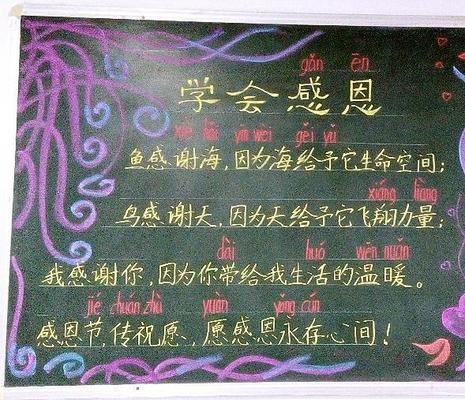 gǎn ēn
学会感恩
xiè hǎi yīn wèi gěi yǔ
鱼感谢海，因为海给予它生命空间；
xiáng liàng
鸟感谢天，因为天给予它飞翔力量；
dài huó wēn nuǎn
我感谢你，因为你带给我生活的温暖。
jié chuán zhù yuàn yǒng cún
感恩节，传祝愿，愿感恩永存心间！